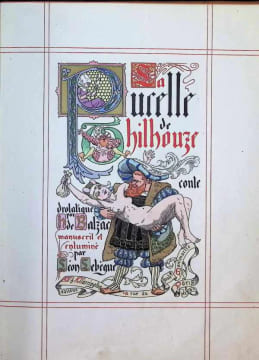 La
Pucelle
de
Thilhouze
conte
drolatique
par
H de Balzac
manuscrit et
enluminé
par
Léon Lebègue